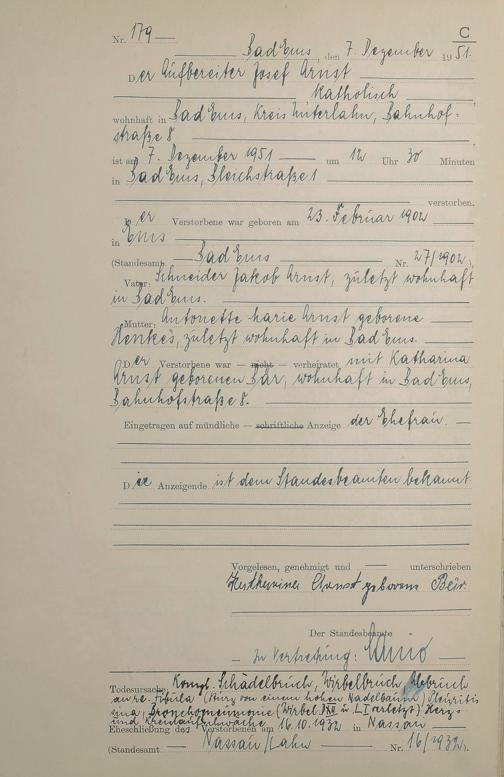 Nr. 179 C
Bad Ems, den 7. Dezember 1951.
Der Aufbereiter Josef Arnst
katholisch
wohnhaft in Bad Ems, Kreis Unterlahn, Bahnhof-
straße 8
ist am 7. Dezember 1951 um 12 Uhr 30 Minuten
in Bad Ems, Bleichstraße 1
verstorben.
Der Verstorbene war geboren am 23. Februar 1902
in Ems
(Standesamt Bad Ems Nr. 27/1902).
Vater: Schneider Jakob Arnst, zuletzt wohnhaft
in Bad Ems.
Mutter: Antonette Marie Arnst geborene
Henkes, zuletzt wohnhaft in Bad Ems.
Der Verstorbene war — nicht — verheiratet mit Katharina
Arnst geborenen Bär, wohnhaft in Bad Ems,
Bahnhofstraße 8.
Eingetragen auf mündliche — schriftliche Anzeige der Ehefrau.
Die Anzeigende ist dem Standesbeamten bekannt.
Vorgelesen, genehmigt und unterschrieben
Katharina Arnst geborene Bär.
Der Standesbeamte
In Vertretung:
Todesursache: Kompl. Schädelbruch, Wirbelbruch,
an re. Fibula (Sturz von einem hohen Nadelbaum) Pleuritis
Bronchopneumonie (Wirbel XII u. L I verletzt) Herz-
und Kreislaufschwäche
Eheschließung des Verstorbenen am 16.10.1932 in Nassau
(Standesamt Nassau/Lahn Nr. 16/1932).